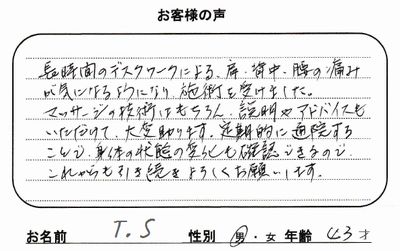 お客様の声
長時間のデスクワークによる、肩・背中・腰の痛み
が気になるようになり、施術を受けました。
マッサージの技術はもちろん、説明やアドバイスも
いただけて、大変助かります。定期的に通院する
ことで、身体の状態の変化も確認できるので、
これからも引き続きよろしくお願いします。
お名前 T.S 性別 男・女 年齢 43才